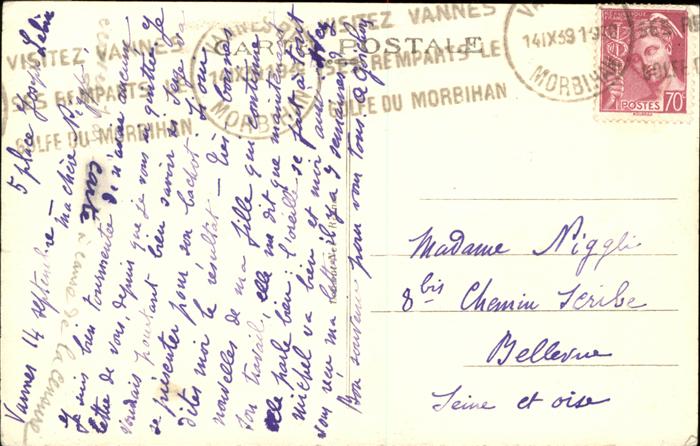 VISITEZ VANNES
SES REMPARTS LE
GOLFE DU MORBIHAN
CARTE POSTALE
VANNES
14 IX 39
MORBIHAN
VISITEZ VANNES
SES REMPARTS LE
GOLFE DU MORBIHAN
14 IX 39
MORBIHAN
SES RE
GOLFE D
POSTES 70c
Vannes 14 septembre – 5 place Joseph Le Brix
ma chère
Je suis bien tourmentée de n'avoir aucune
lettre de vous, depuis que je vous ai quittée. Je
voudrais pourtant bien savoir si
se présenter pour son bachot et si oui
dites moi le résultat – Très bonnes
nouvelles de ma fille qui continue
son travail, elle me dit que maintenant
elle parle bien : l'oreille se fait à tout
michel va bien et moi aussi. Avez
vous reçu ma il y a 3 semaines
Bon souvenir pour vous tous
carte
à cause de la censure
Madame Niggli
8 bis Chemin Scribe
Bellevue
Seine et oise